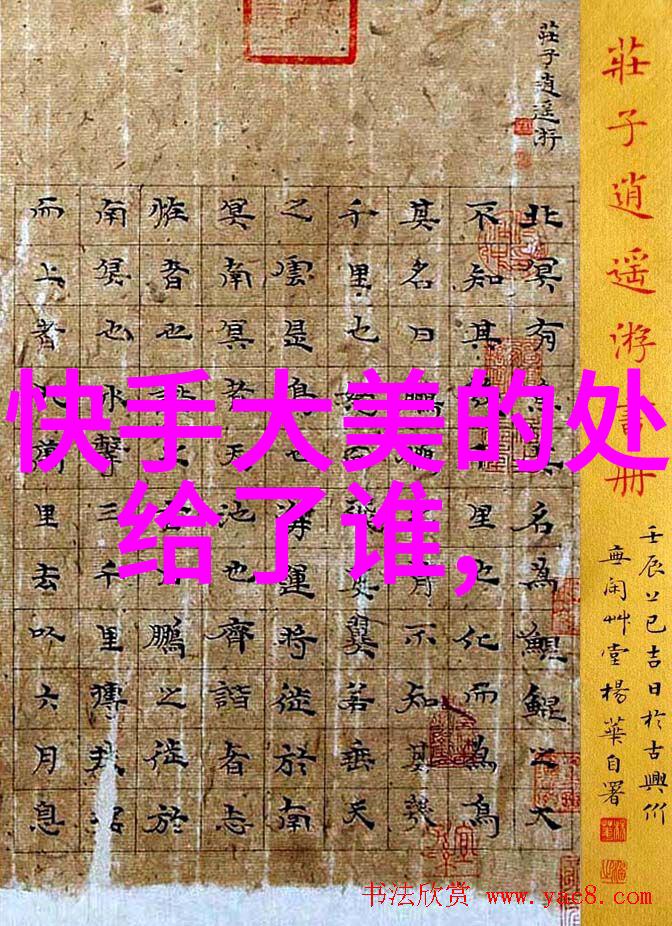 莊子逍遙游書冊
壬辰上巳吉日於古興竹
無閑艸堂楊華自署
莊子逍遙游
北冥有名為鯤鯤之大
不知其里也化而為鳥
其名曰鵬不知其幾
千里也飛其翼若垂天
之雲是鳥也海運將徙於南
冥南冥者天池也齊諧者志
恠者也之鵬之徙於
南冥也水擊三千里摶扶搖
而上者九萬里去以六月息
快手大美的处
给了谁,
书法欣赏 www.yac8.com